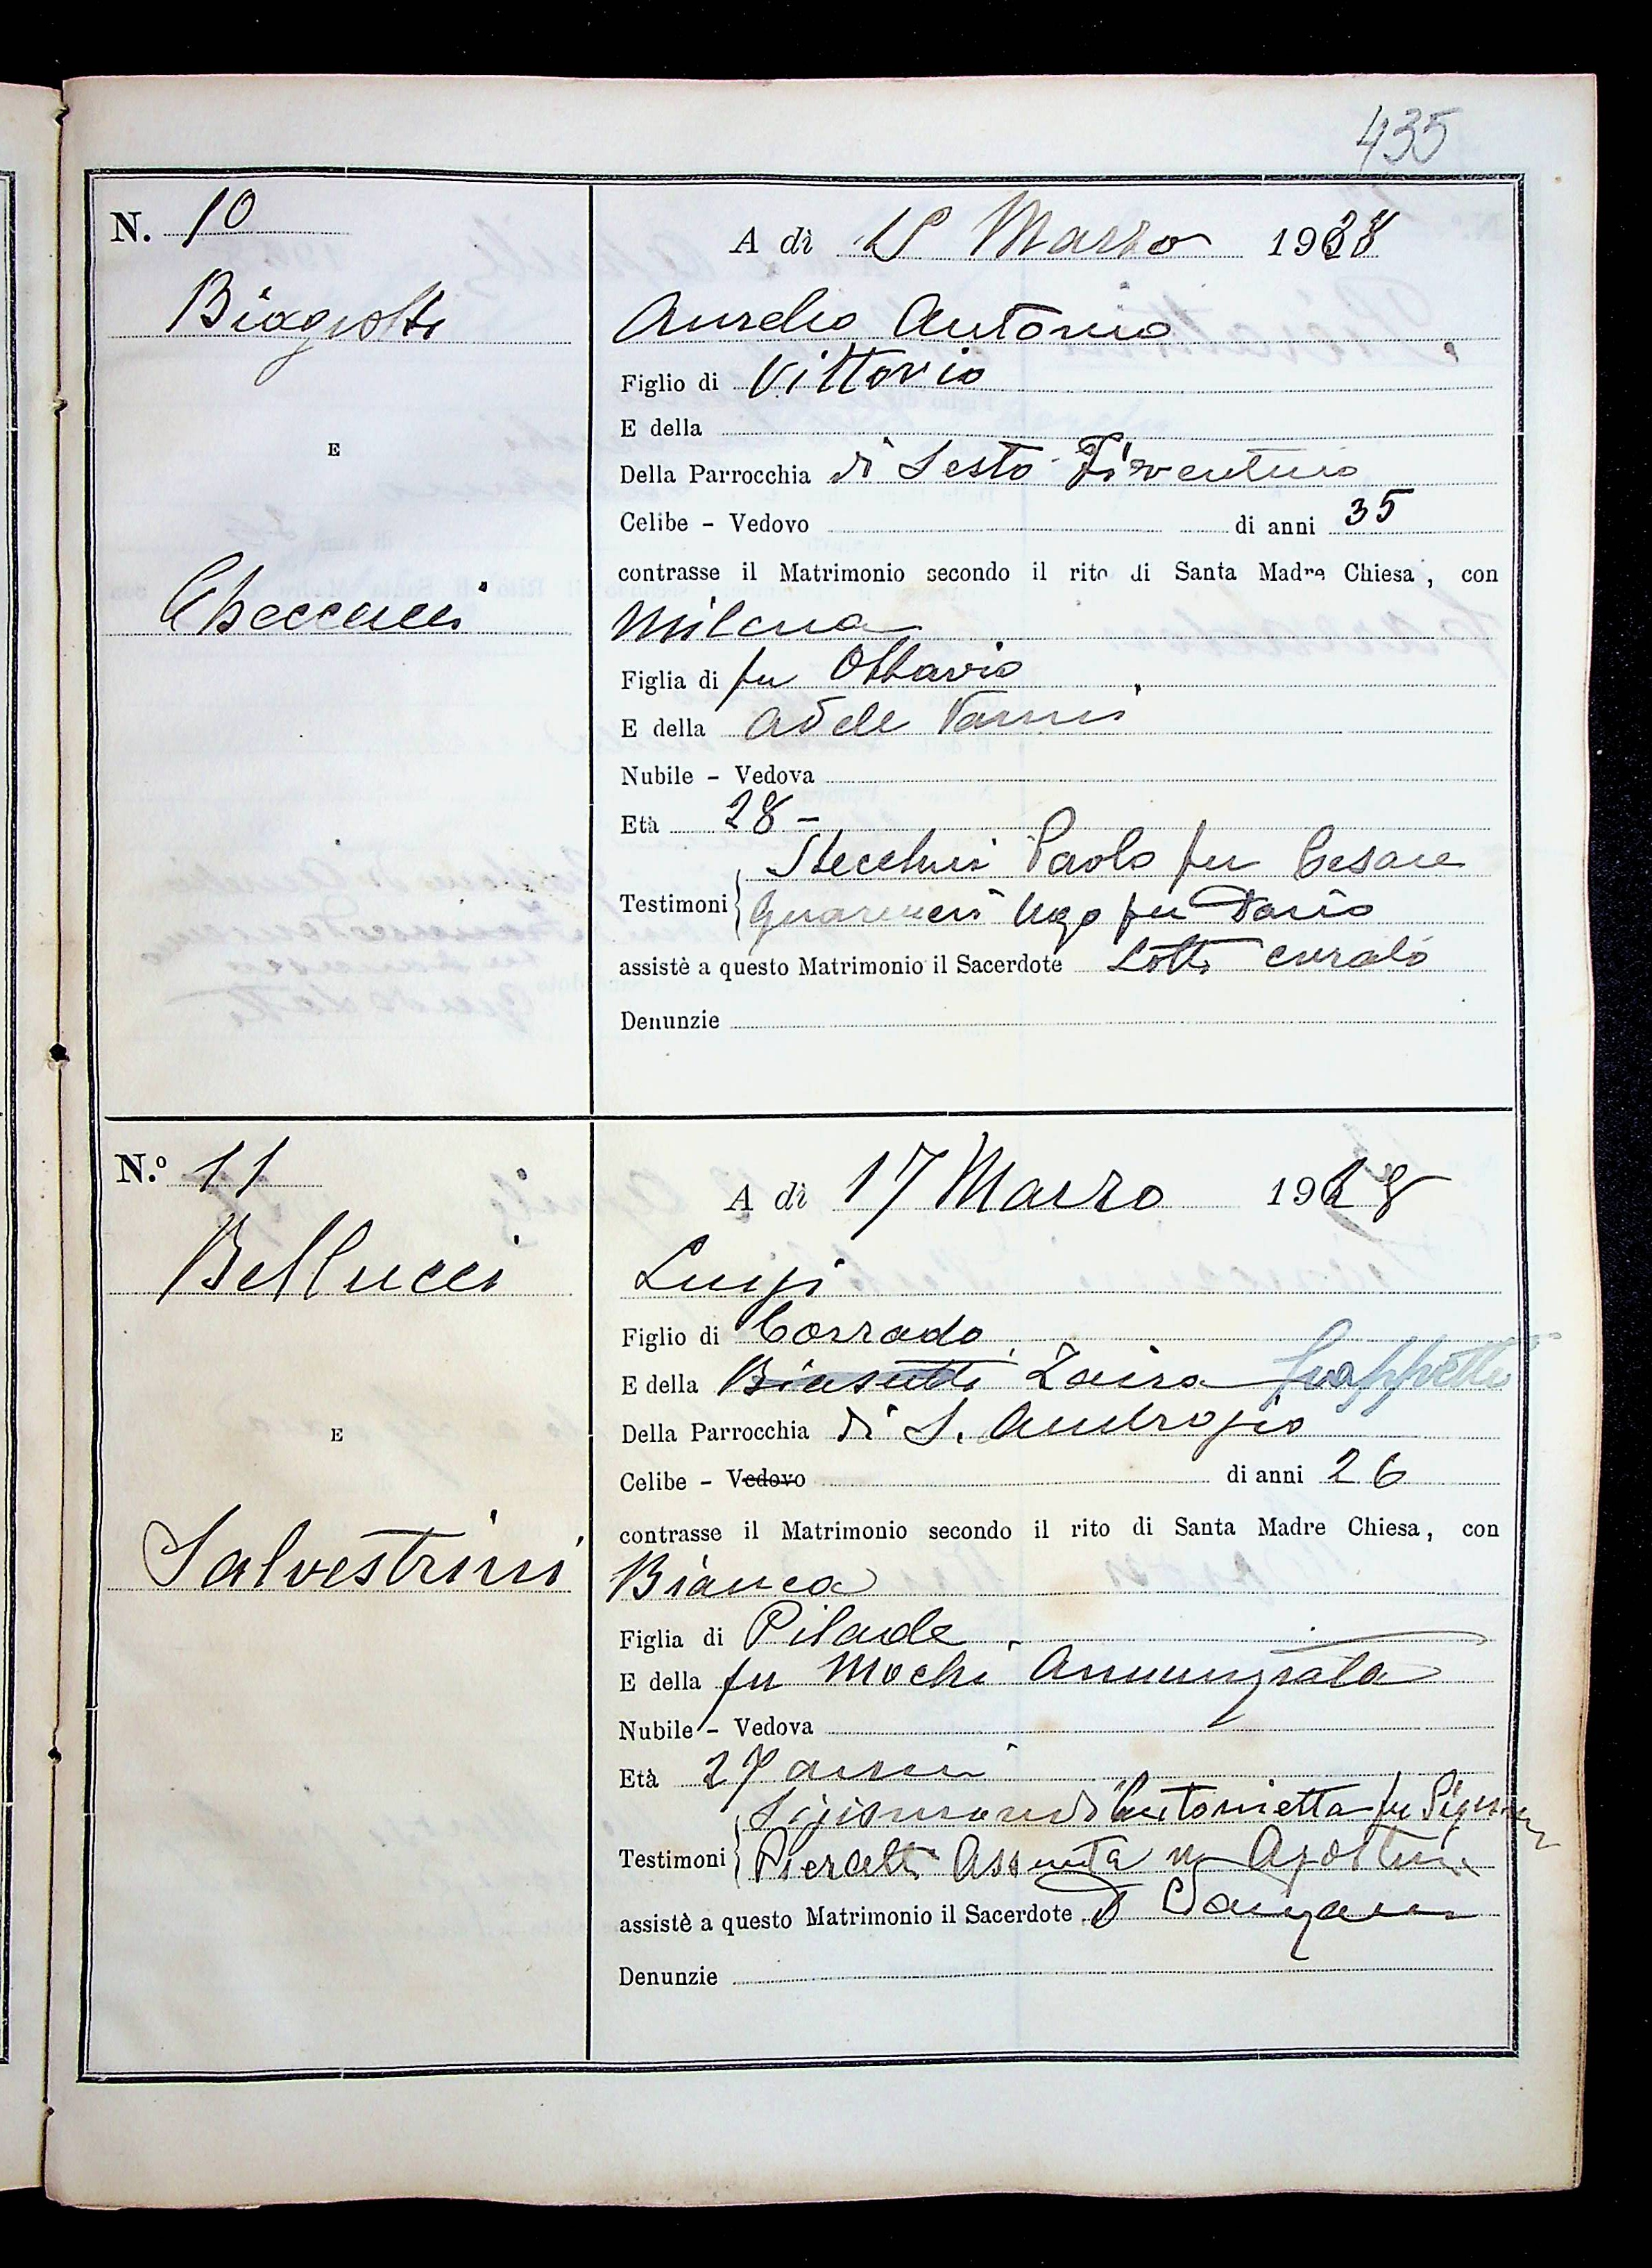 435
N. 10
A dì 15 Marzo 1928
Biagiotti
Aurelio Antonio
Figlio di Vittorio
E della
Della Parrocchia di Sesto Fiorentino
E
Celibe - Vedovo di anni 35
contrasse il Matrimonio secondo il rito di Santa Madre Chiesa, con
Checcucci
Milena
Figlia di fu Ottavio
E della Adele Vanni
Nubile - Vedova
Età 28 -
Stecchini Paolo fu Cesare
Testimoni Guarnieri Ugo fu Dario
assistè a questo Matrimonio il Sacerdote Lotti curato
Denunzie
N.º 11
A dì 17 Marzo 1928
Bellucci
Luigi
Figlio di Corrado
E della Biasutti Zaira
Della Parrocchia di S. Ambrogio
E
Celibe - Vedovo di anni 26
contrasse il Matrimonio secondo il rito di Santa Madre Chiesa, con
Salvestrini
Bianca
Figlia di Pilade
E della fu Mochi Annunziata
Nubile - Vedova
Età 27 anni
Sigismondi Antonietta fu
Testimoni Pieralli Assunta
assistè a questo Matrimonio il Sacerdote D
Denunzie